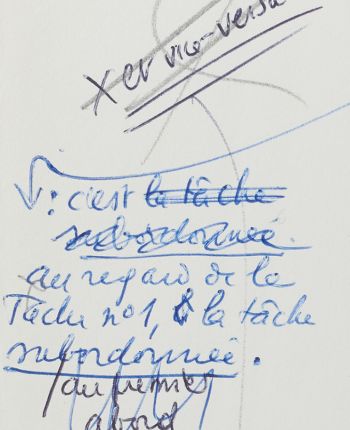 X et vice-versa
: c'est la tâche
subordonnée.
au regard de la
Tâche n°1, la tâche
subordonnée.
/au premier
abord